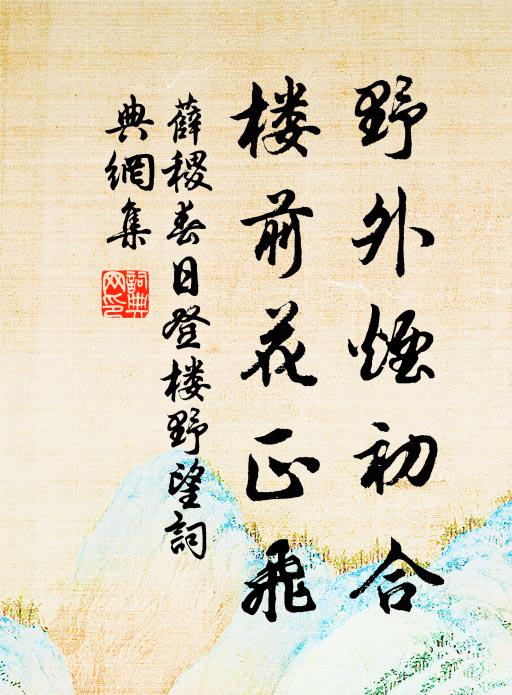 野外煙初合
楼前花正飛
薛稷春日登楼野望詞
典網集
詞典网印